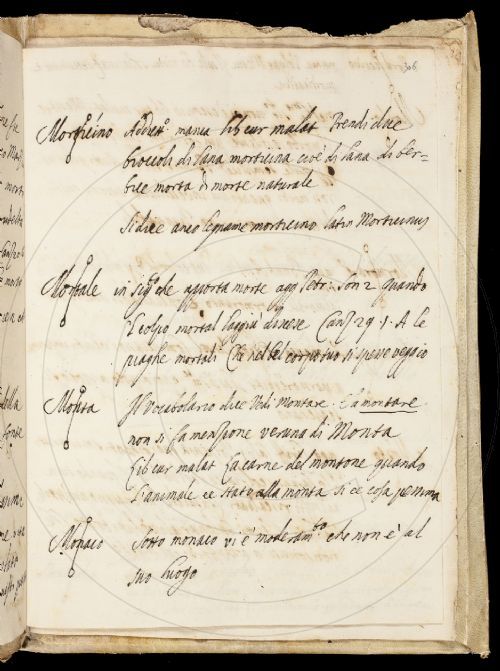 306
Morticino Addiet.º manca lib cur malat Prendi due
broccoli di lana morticina cioè di lana di ber=
bice morta di morte naturale
Si dice anco legname morticino latin Morticinus
Mortale in sig.º che apporta morte agg Petr: Son 2 quando
il colpo mortal laggiù discese Canz 29. 1. A le
piaghe mortali Che nel bel corpo tuo si spesse veggio
Monta Il Vocabolario dice Vedi Montare. E a montare
non si fa menzione veruna di Monta
Lib cur malat La carne del montone quando
L'animale è stato alla monta si è cosa pessima
Monaco Sotto monaco vi è moderam.to che non è al
suo luogo